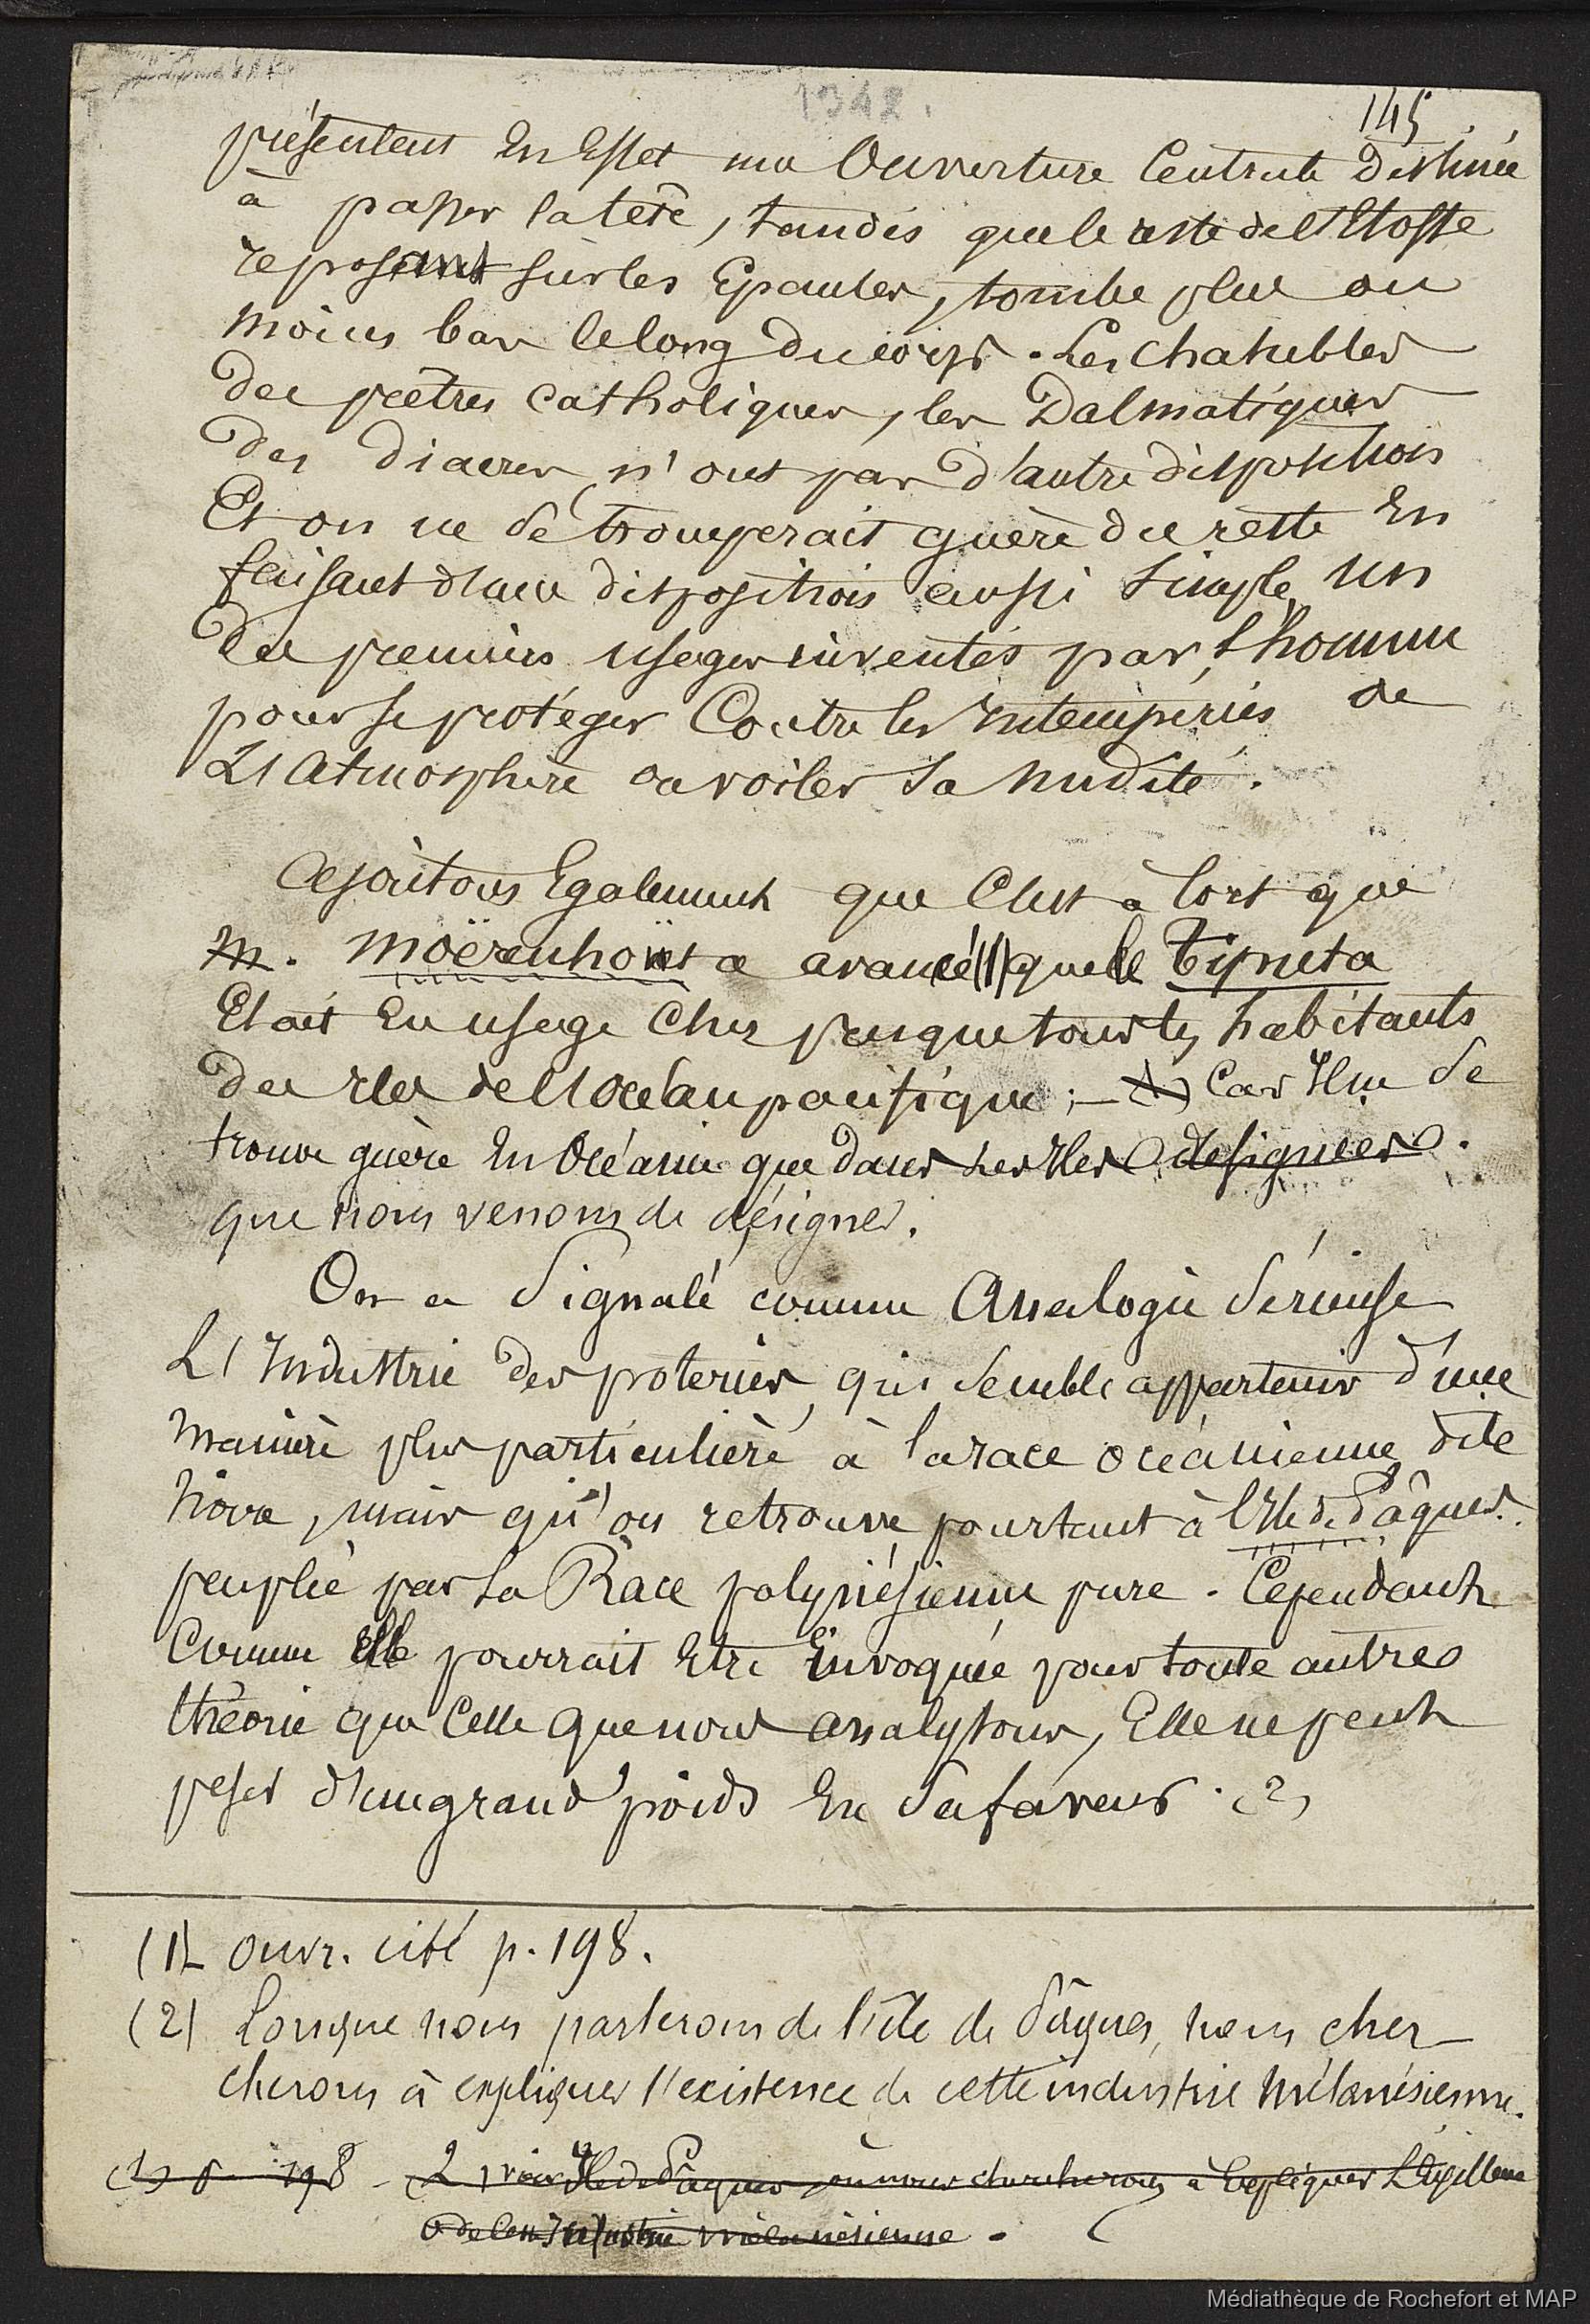 1342.
145
présentent En Effet une Ouverture Centrale Destinée
à passer la tête, tandis que le reste de l'Etoffe
reposant sur les Epaules, tombe plus ou
moins bas le long du corps. Les Chasubles
des prêtres Catholiques, les Dalmatiques
des diacres, n'ont pas d'autre disposition
Et on ne se tromperait guère du reste En
faisant d'une disposition aussi simple, un
des premiers usages inventés par l'homme
pour se protéger Contre les Intempéries de
L'Atmosphère ou voiler sa nudité.
Ajoutons Egalement que C'est à tort que
M. Moërenhoüt a avancé (1) que le Tiputa
Etait En usage Chez presque tous les habitants
des Iles de l'Océan pacifique ; — (1) Car Il ne se
trouve guère En Océanie que dans les Iles désignées.
que nous venons de désigner.
On a signalé comme Analogie Sérieuse
L'Industrie des poteries, qui semble appartenir d'une
manière plus particulière à la race océanienne dite
noire, mais qu'on retrouve pourtant à l'Ile de Pâques.
peuplée par la Race polynésienne pure. Cependant
Comme Elle pourrait Etre Invoquée pour toute autre
théorie que Celle que nous analysons, Elle ne peut
peser d'un grand poids En sa faveur. (2)
(1) ouvr. cité p. 198.
(2) Lorsque nous parlerons de l'île de Pâques, nous cher-
cherons à expliquer l'existence de cette industrie Mélanésienne.
(1) p. 198 - 2 voir Ile de Pâques où nous chercherons à Expliquer L'Existence
de Cette Industrie mélanésienne.
Médiathèque de Rochefort et MAP